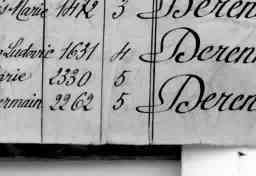 s Marie 1472 3 Deren
Ludovic 1631 4 Deren
arie 2330 5
ermain 2262 5 Deren